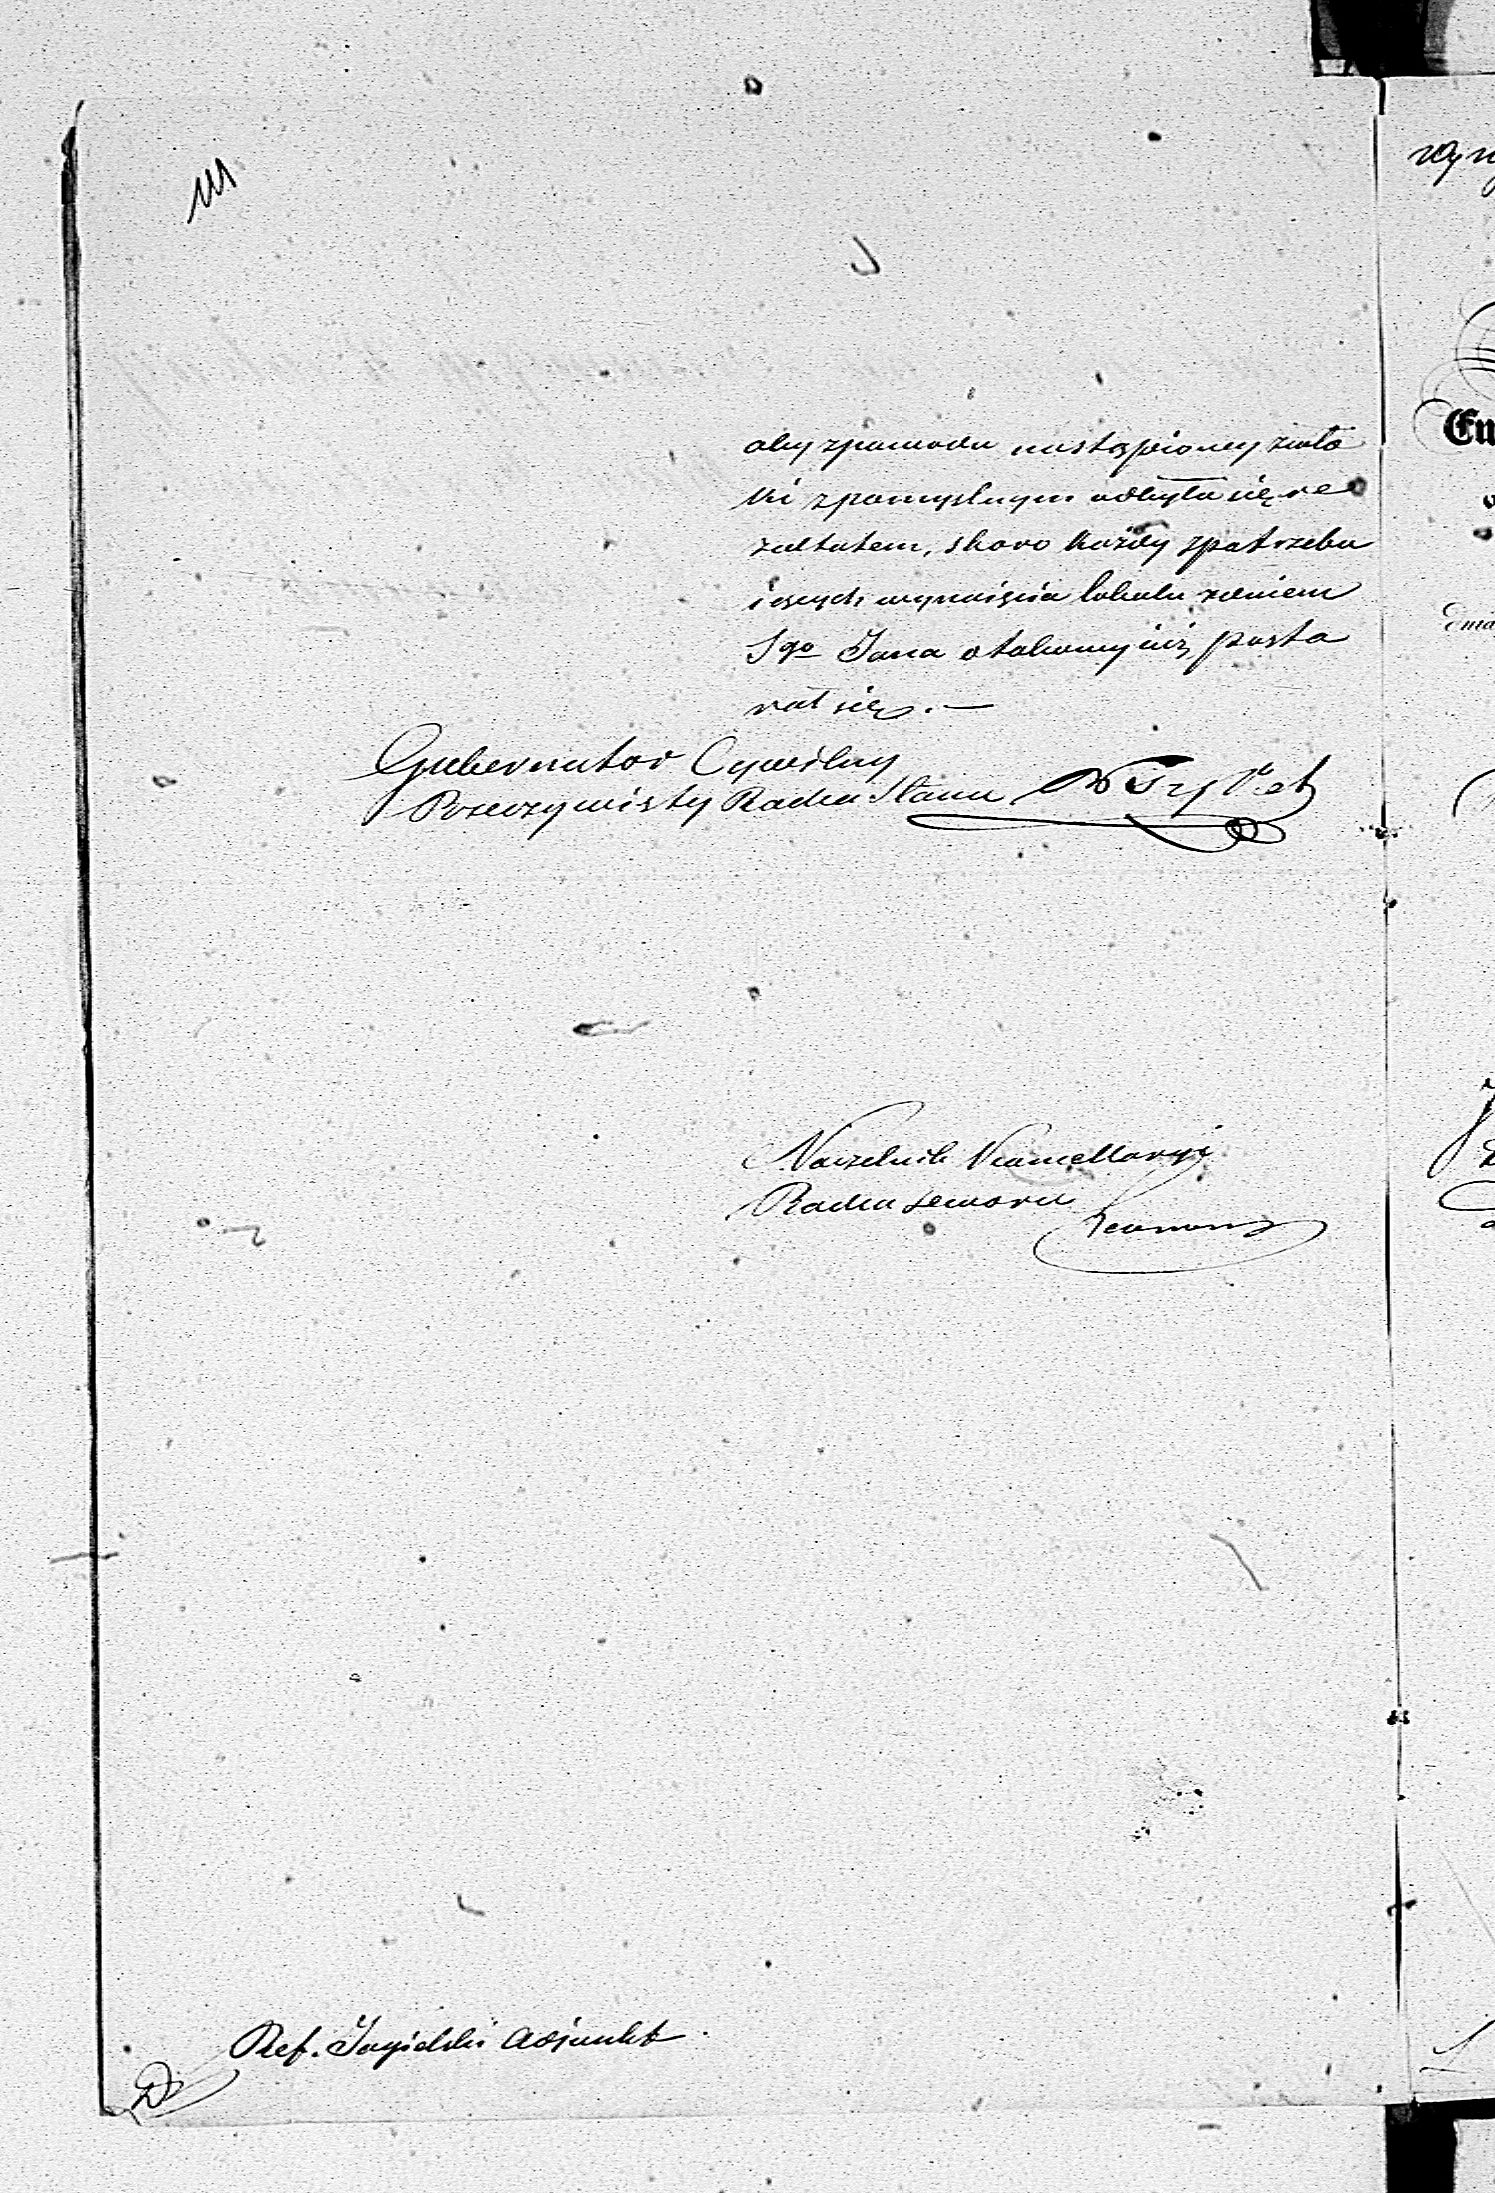 aby zpowodu nastąpioney zwło
ki zpomyślnym odbyła się re
zultatem, skoro każdy zpotrzebu
iących wynaięcia lokalu zdniem
Sgo Jana o takowy iuż posta
rał się. —
Gubernator Cywilny
Rzeczywisty Radca Stanu
Naczelnik Kancellaryi
Radca Dworu
Ref. Jagielski Adjunkt